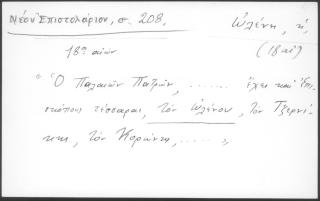 Νέον Ἐπιστολάριον, σ. 208. Ὠλένη, ἡ,
18ος αἰών (18 αἰ)
"Ὁ Παλαιῶν Πατρῶν, ...... ἔχει καὶ ἐπι-
σκόπους τέσσαρας, τὸν Ὠλένου, τὸν Τζερνί-
κης, τὸν Κορώνης, ...... »,